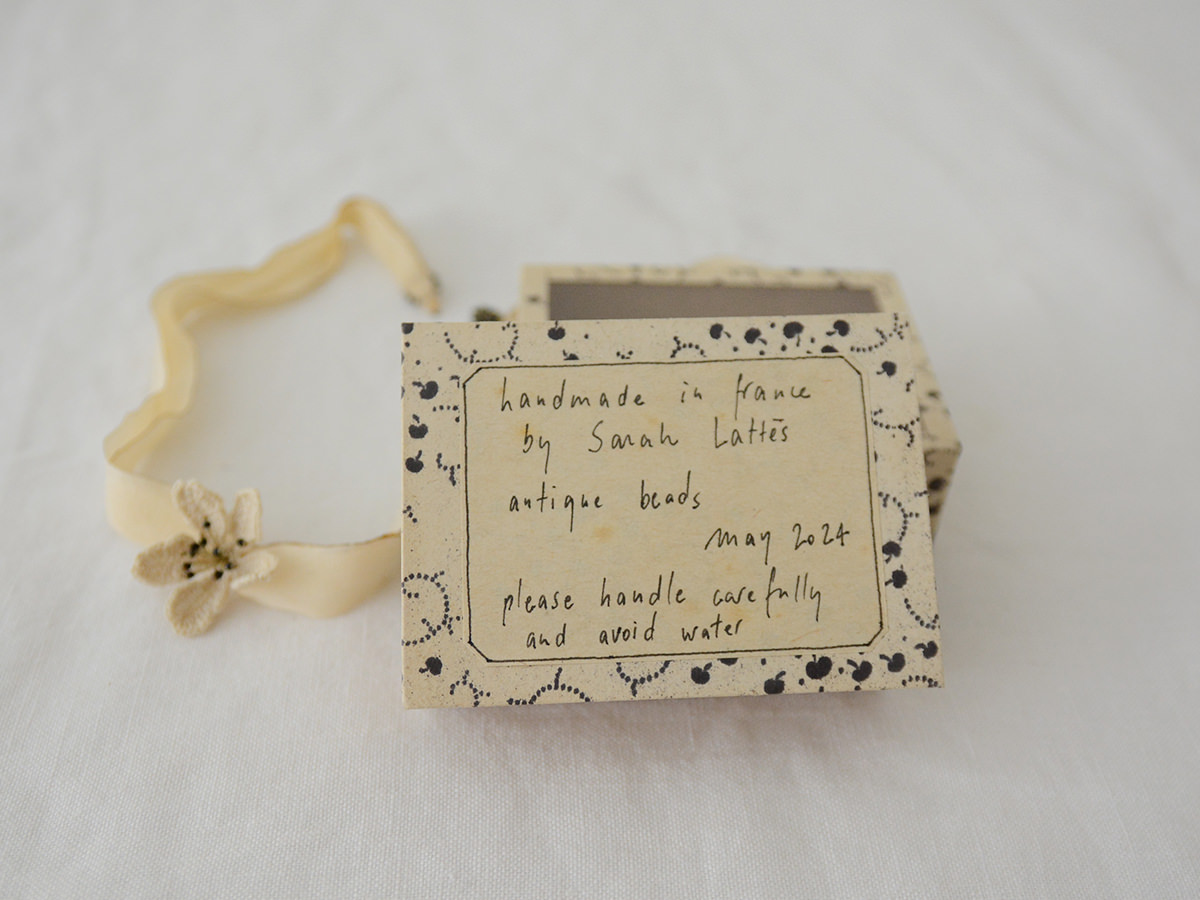 handmade in france
by Sarah Lattēs
antique beads
may 2024
please handle carefully
and avoid water